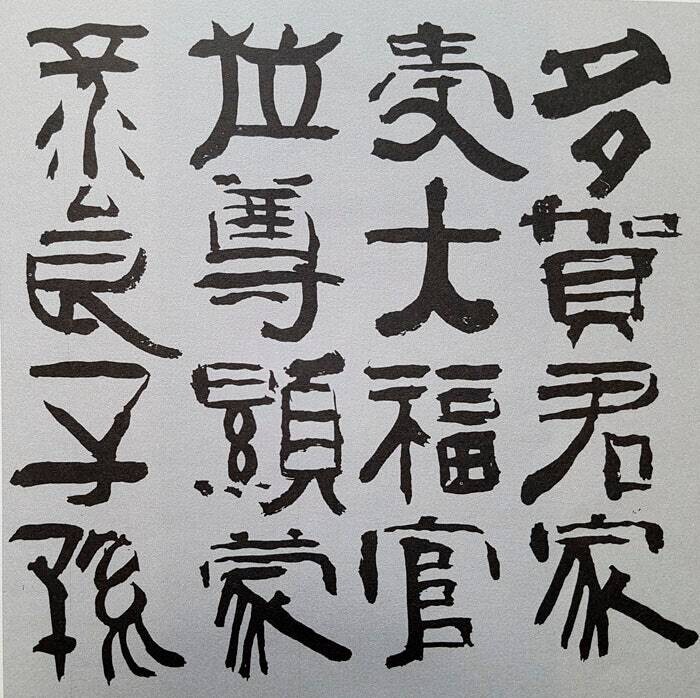 多賀君家
受大福官
位尊顯蒙
彔食子孫